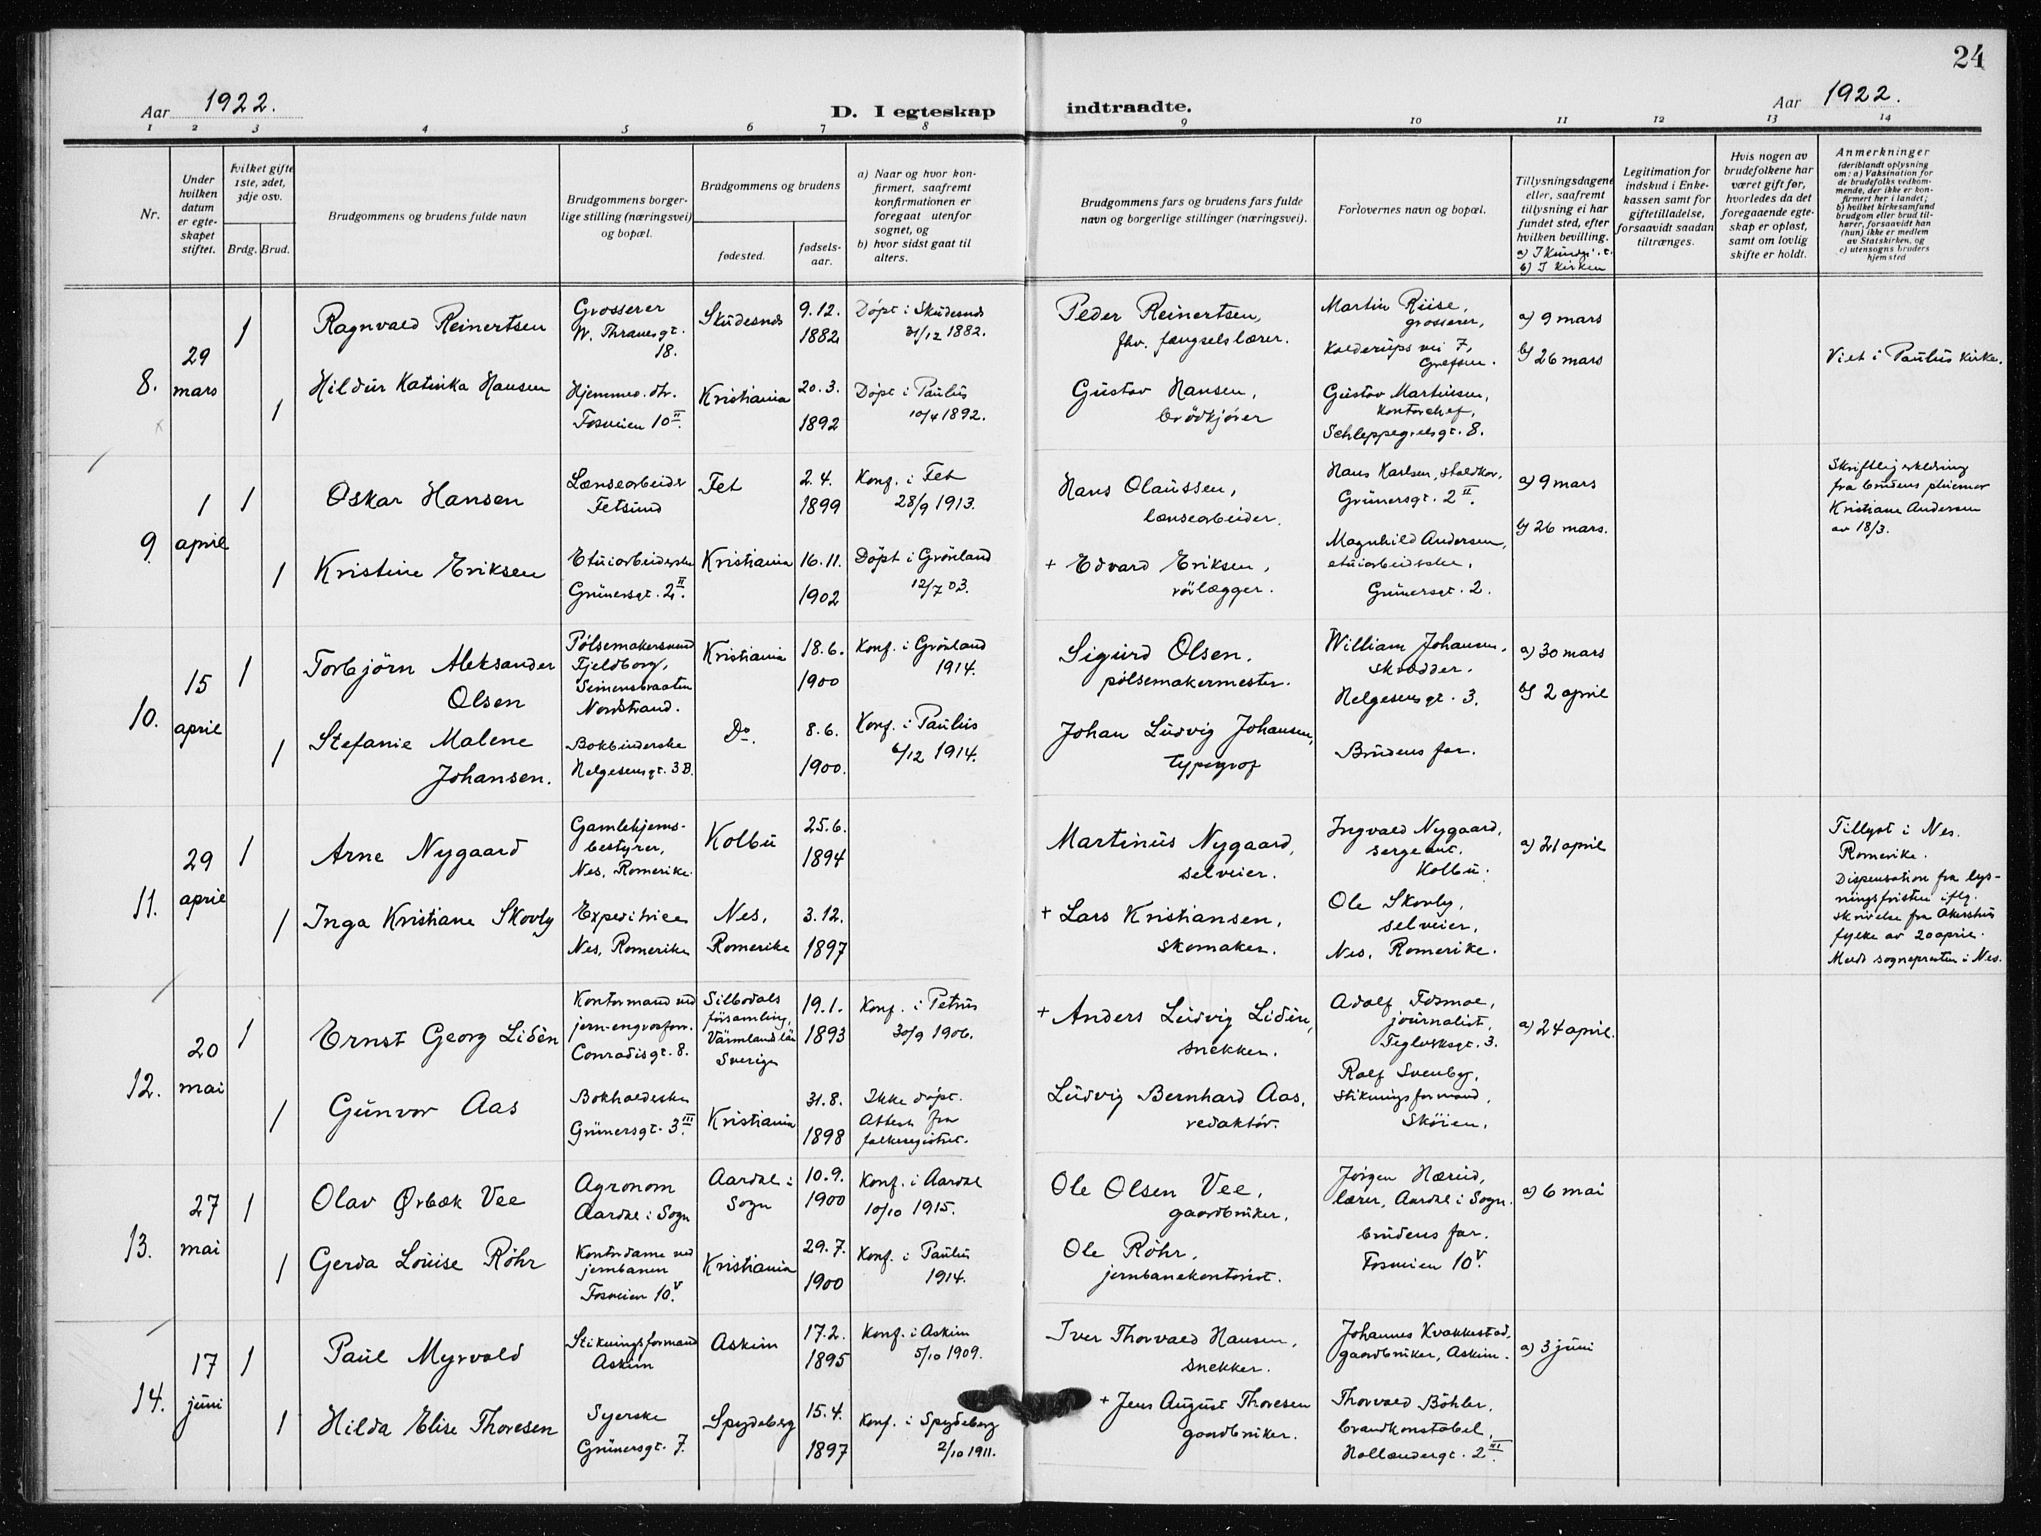 24
Aar 1922.
D. I egteskap indtraadte.
Aar 1922.
1 2 3 4 5 6 7 8 9 10 11 12 13 14
Nr.
Under hvilken datum er egteskapet stiftet.
Hvilket gifte 1ste, 2det, 3dje osv.
Brdg. Brud.
Brudgommens og brudens fulde navn
Brudgommens borgerlige stilling (næringsvei) og bopæl.
Brudgommens og brudens
fødested.
fødselsaar.
a) Naar og hvor konfirmert, saafremt konfirmationen er foregaat utenfor sognet, og
b) hvor sidst gaat til alters.
Brudgommens fars og brudens fars fulde navn og borgerlige stillinger (næringsvei).
Forlovernes navn og bopæl.
Tillysningsdagene eller, saafremt tillysning ei har fundet sted, efter hvilken bevilling.
b) I kirken
Legitimation for indskud i Enkekassen samt for giftetilladelse, forsaavidt saadan tiltrænges.
Hvis nogen av brudefolkene har været gift før, hvorledes da det foregaaende egteskap er opløst, samt om lovlig skifte er holdt.
Anmerkninger
(deriblandt oplysning om: a) Vaksination for de brudefolks vedkommende, der ikke er konfirmert her i landet;
b) hvilket kirkesamfund brudgom eller brud tilhører, forsaavidt han (hun) ikke er medlem av Statskirken, og
c) utensogns bruders hjemsted
8.
29 mars
1
Ragnvald Reinertsen
Grosserer
W. Thranesgt. 18.
Skudesnes
9.12. 1882
Døpt i Skudesnes
31/12 1882.
Peder Reinertsen,
fhv. fængselslærer.
Martin Riise,
grosserer,
Kolderups vei 7,
Grefsen.
a) 9 mars
b) 26 mars
Viet i Paulus kirke.
1
Hildur Katinka Hansen
Hjemmev. dtr.
Fosveien 10 II.
Kristiania
20.3. 1892
Døpt i Paulus
10/4 1892.
Gustav Hansen,
brødkjører
Gustav Martinsen,
kontorchef,
Schleppegrelsgt. 8.
9.
1 april
1
Oskar Hansen
Lænsearbeider
Fetsund
Fet
2.4. 1899
Konf. i Fet
28/9 1913.
Hans Olaussen,
lænsearbeider.
Hans Karlsen, staldkar,
Grünersgt. 2 II.
a) 9 mars
b) 26 mars.
Skriftlig erklæring
fra brudens pleiemor
Kristiane Andersen
av 18/3.
1
Kristine Eriksen
Etuiarbeiderske
Grünersgt. 2 II.
Kristiania
16.11. 1902
Døpt i Grønland
12/7 03.
+ Edvard Eriksen,
rørlægger.
Magnhild Andersen,
etuiarbeiderske,
Grünersgt. 2.
10.
15 april
1
Torbjörn Aleksander
Olsen
Pølsemakersvend
Fjeldborg,
Nordstrand.
Kristiania
18.6. 1900
Konf. i Grønland
1914.
Sigurd Olsen,
pølsemakermester.
William Johansen,
skrædder.
Helgesensgt. 3.
a) 30 mars
b) 2 april
1
Stefanie Malene
Johansen.
Bokbinderske
Helgesensgt. 3 B.
Do.
8.6. 1900.
Konf. i Paulus
6/12 1914.
Johan Ludvig Johansen,
typograf
Brudens far.
11.
29 april
1
Arne Nygaard
Gamlehjems-
bestyrer,
Nes, Romerike.
Kolbu
25.6. 1894
Martinus Nygaard,
selveier.
Ingvald Nygaard,
sergeant.
Kolbu.
a) 21 april
Tillyst i Nes.
Romerike.
Dispensation fra lys-
ningsfristen iflg.
skrivelse fra Akershus
fylke av 20 april.
Meldt sognepresten i Nes.
1
Inga Kristiane Skovly
Expeditrice
Nes, Romerike
Nes,
Romerike
3.12. 1897
+ Lars Kristiansen,
skomaker.
Ole Skovly,
selveier,
Nes, Romerike.
12.
20 mai
1
Ernst Georg Lidén
Kontormand ved
jern-engrosforr.
Conradisgt. 8.
Silbodals
församling,
Värmlands län
Sverige
19.1. 1893
Konf. i Petrus
30/9 1906.
+ Anders Ludvig Lidén,
snekker.
Adolf Fosmoe,
journalist,
Teglverksgt. 3.
a) 24 april.
1
Gunvor Aas
Bokholderske
Grünersgt. 3 III.
Kristiania
31.8. 1898
Ikke døpt.
Attest fra
folkeregistret.
Ludvig Bernhard Aas,
redaktør.
Rolf Svenby,
stikningsformand,
Skøien.
13.
27 mai
1
Olav Ørbæk Vee
Agronom
Aardal i Sogn
Aardal i
Sogn
10.9. 1900
Konf. i Aardal
10/10 1915.
Ole Olsen Vee,
gaardbruker.
Jørgen Hærud,
lærer, Aardal i Sogn.
a) 6 mai
1
Gerda Louise Röhr
Kontordame ved
jernbanen
Fosveien 10 V.
Kristiania
29.7. 1900
Konf. i Paulus
1914.
Ole Röhr,
jernbanekontorist.
brudens far.
Fosveien 10 V.
14.
17 juni
1
Paul Myrvold
Stikningsformand
Askim
Askim
17.2. 1895
Konf. i Askim
5/10 1909.
Iver Thorvald Hansen,
snekker.
Johannes Kvakkestad,
gaardbruker, Askim.
a) 3 juni
1
Hilda Elise Thoresen
Syerske
Grünersgt. 7.
Spydeberg
15.4. 1897
Konf. i Spydeberg
2/10 1911.
+ Jens August Thoresen
gaardbruker.
Thorvald Böhler,
brandkonstabel,
Hollændergt. 2 III.